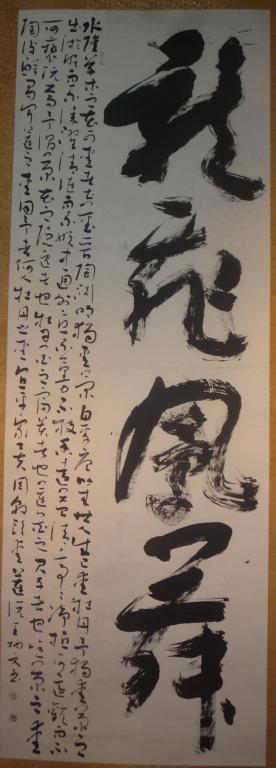 龍飛鳳舞
水陸草木之花可愛者甚蕃晉陶淵明獨愛菊自李唐以來世人甚愛牡丹予獨愛蓮之
出淤泥而不染濯清漣而不妖中通外直不蔓不枝香遠益清亭亭淨植可遠觀而不
可褻玩焉予謂菊花之隱逸者也牡丹花之富貴者也蓮花之君子者也噫菊之愛
陶後鮮有聞蓮之愛同予者何人牡丹之愛宜乎眾矣周敦頤愛蓮說